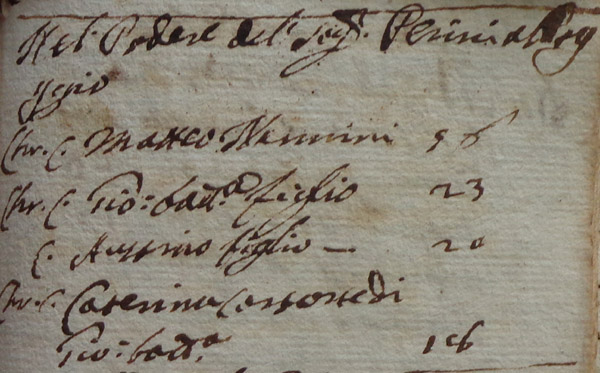 Nel Podere del Sig.r Perini al Pog
ggio
Chr. C. Matteo Nannini 56
Chr. C. Gio: batt.a figlio 23
C. figlio — 20
Chr. C. Caterina Consorte di
Gio: batt.a 16